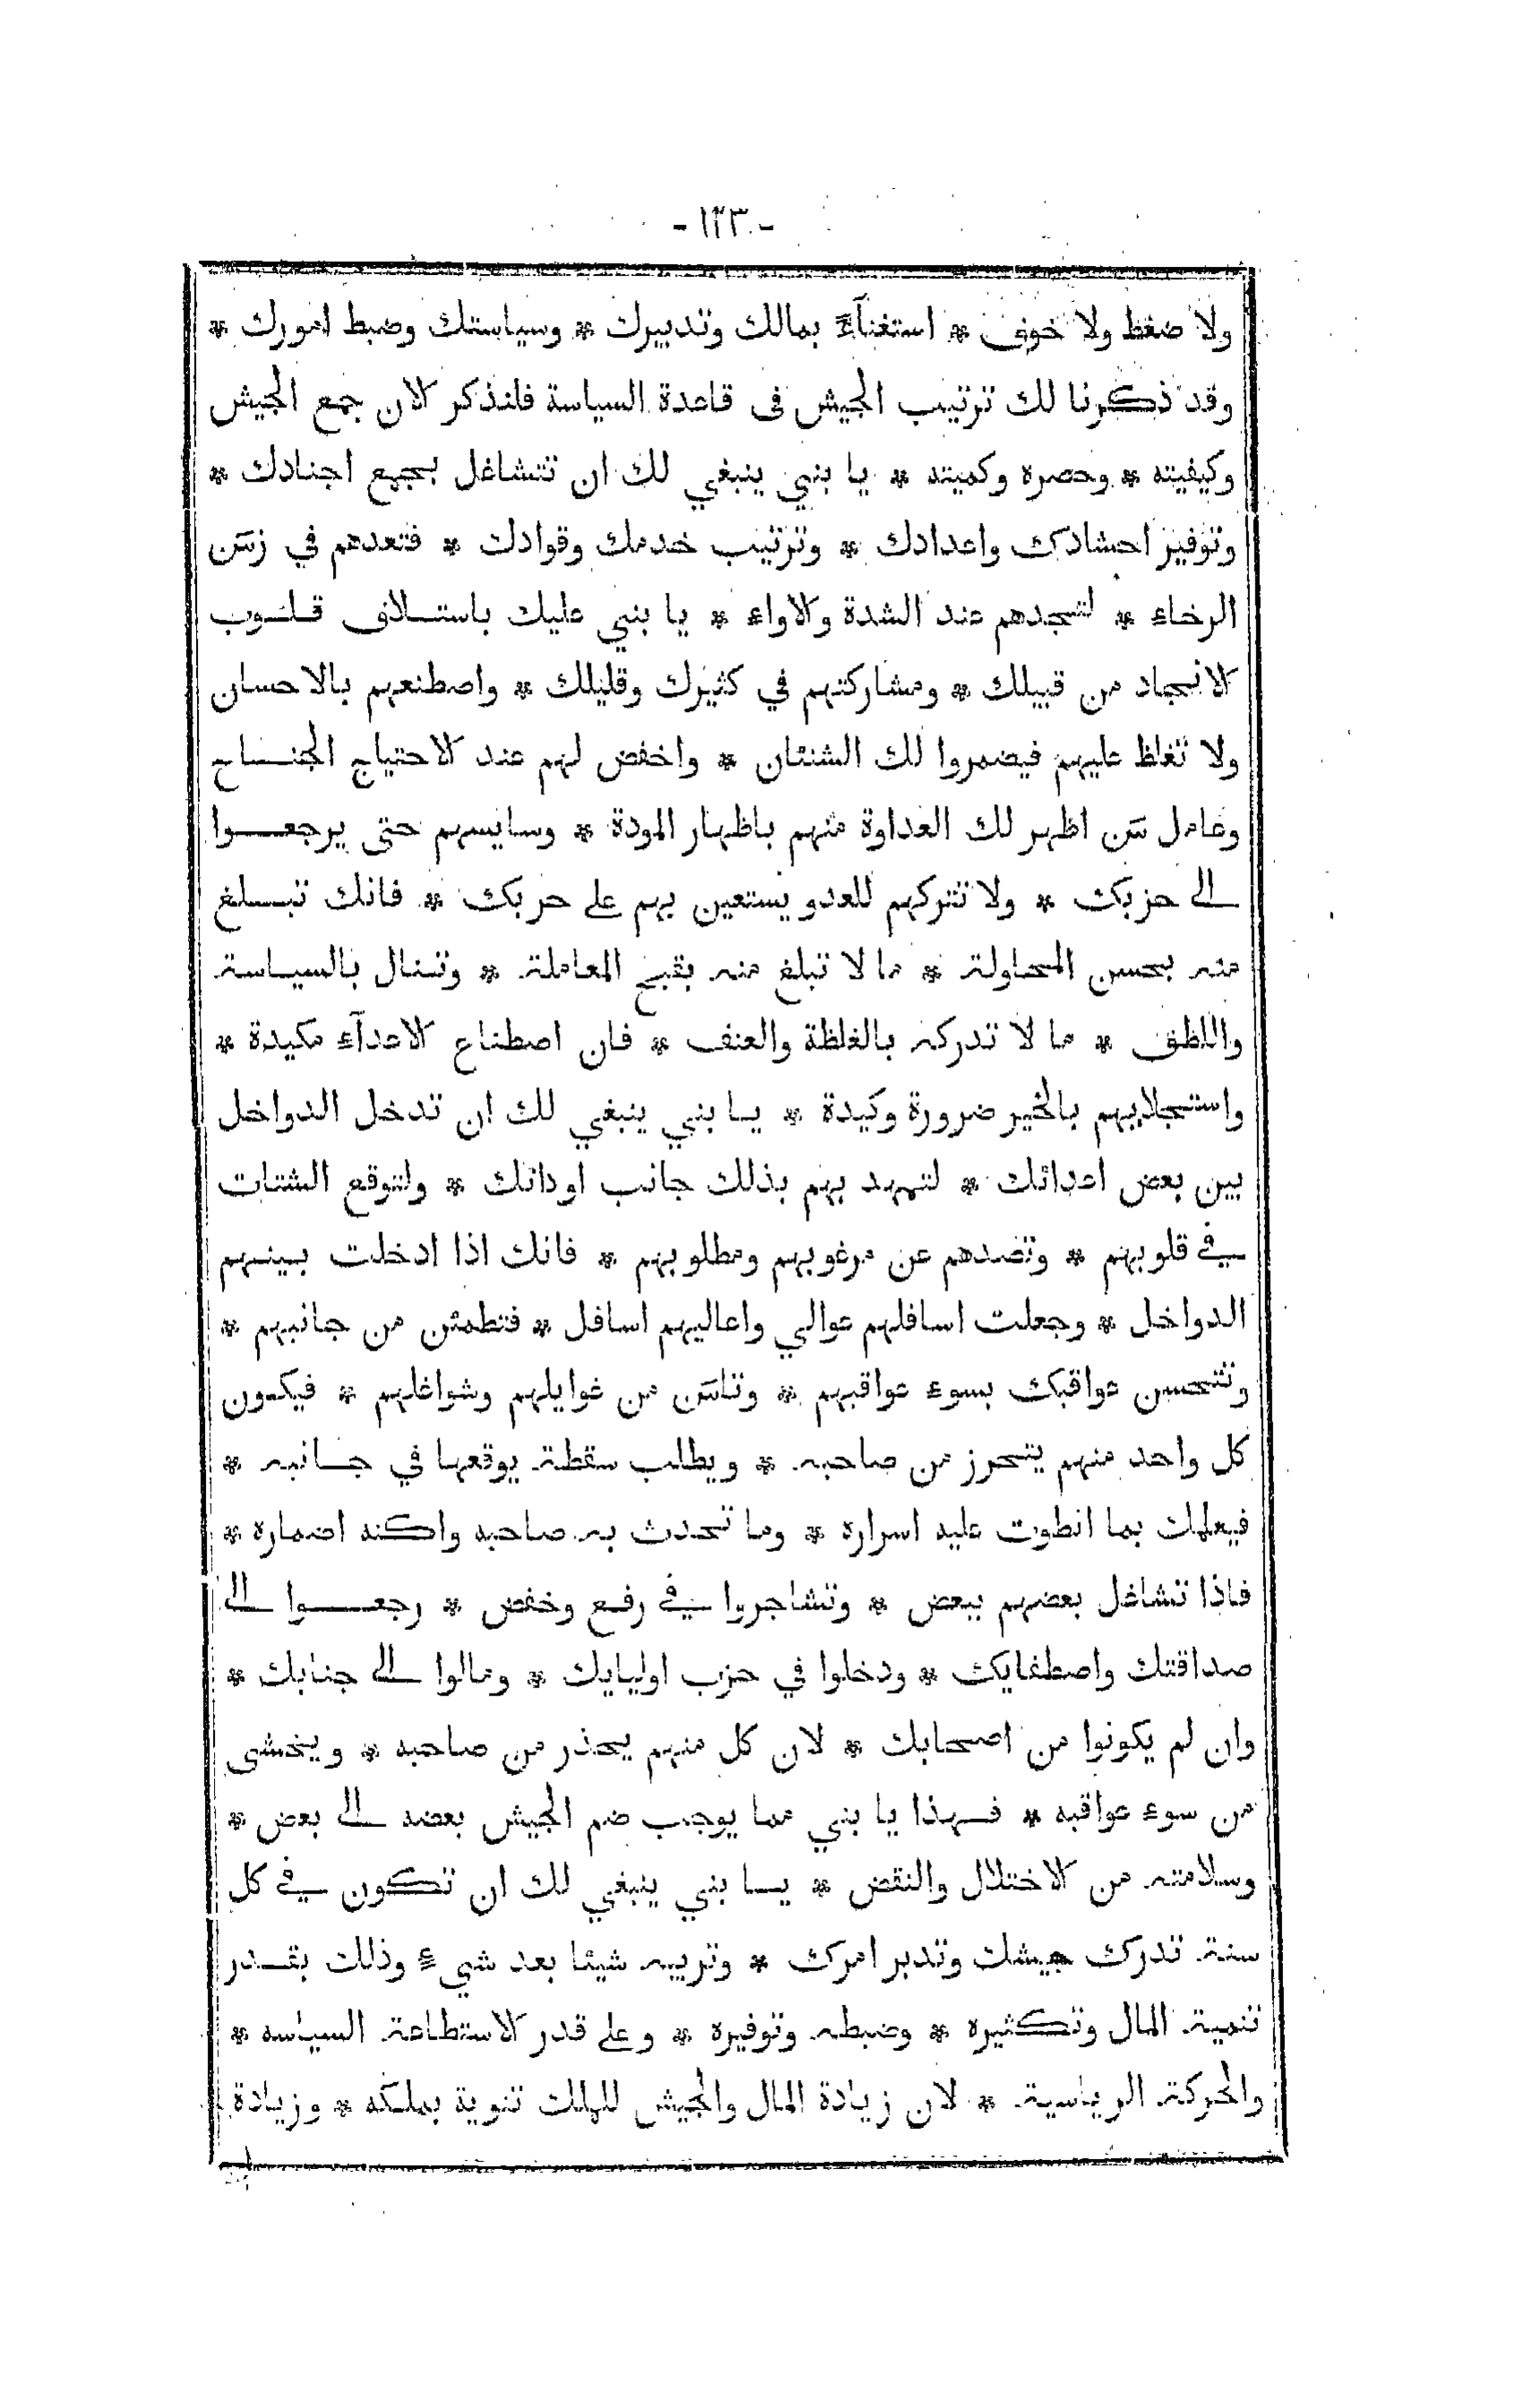 - ١٢٣ -
ولا ضغط ولا خوف * استغنآءً بمالك وتدبيرك * وسياستك وضبط امورك *
وقد ذكرنا لك ترتيب الجيش فى قاعدة السياسة فلنذكر الان جمع الجيش
وكيفيته * وحصره وكميته * يا بني ينبغي لك ان تتشاغل بجمع اجنادك *
وتوفير احشادك واعدادك * وترتيب خدمك وقوادك * فتعدهم في زمن
الرخاء * لتجدهم عند الشدة والاواء * يا بني عليك باستلاف قلوب
الانجاد من قبيلك * ومشاركتهم في كثيرك وقليلك * واصطنعهم بالاحسان
ولا تغلظ عليهم فيضمروا لك الشنئان * واخفض لهم عند الاحتياج الجناح
وعامل من اظهر لك العداوة منهم باظهار المودة * وسايسهم حتى يرجعوا
الى حزبك * ولا تتركهم للعدو يستعين بهم على حربك * فانك تبلغ
منه بحسن المحاولة * ما لا تبلغ منه بقبح المعاملة * وتنال بالسياسة
واللطف * ما لا تدركه بالغلظة والعنف * فان اصطناع الاعدآء مكيدة *
واستجلابهم بالخير ضرورة وكيدة * يا بني ينبغي لك ان تدخل الدواخل
بين بعض اعدائك * لتمهد بهم بذلك جانب اودائك * ولتوقع الشتات
في قلوبهم * وتصدهم عن مرغوبهم ومطلوبهم * فانك اذا ادخلت بينهم
الدواخل * وجعلت اسافلهم عوالي واعاليهم اسافل * فتطمئن من جانبهم *
وتتحسن عواقبك بسوء عواقبهم * وتامن من غوايلهم وشواغلهم * فيكون
كل واحد منهم يتحرز من صاحبه * ويطلب سقطة يوقعها في جانبه *
فيعلمك بما انطوت عليه اسراره * وما تحدث به صاحبه واكنه اضماره *
فاذا تشاغل بعضهم ببعض * وتشاجروا في رفع وخفض * رجعوا الى
صداقتك واصطفايك * ودخلوا في حزب اوليايك * ومالوا الى جنابك *
وان لم يكونوا من اصحابك * لان كل منهم يحذر من صاحبه * ويخشى
من سوء عواقبه * فهذا يا بني مما يوجب ضم الجيش بعضه الى بعض *
وسلامته من الاختلال والنقض * يا بني ينبغي لك ان تكون في كل
سنة تدرك جيشك وتدبر امرك * وتربيه شيئا بعد شيء وذلك بقدر
تنمية المال وتكثيره * وضبطه وتوفيره * وعلى قدر الاستطاعة السياسه *
والحركة الرياسية * لان زيادة المال والجيش للملك تنوية بملكه * وزيادة